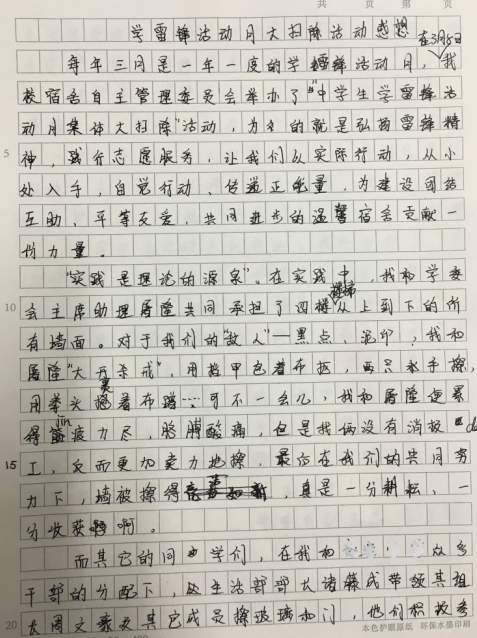 共 页 第 页
学雷锋活动月大扫除活动感想
在3月5日
每年三月是一年一度的学雷锋活动月，我
校宿舍自主管理委员会举办了"中学生学雷锋活
动月集体大扫除"活动，为的就是弘扬雷锋精
5 神，践行志愿服务，让我们从实际行动，从小
处入手，自觉行动、传递正能量，为建设团结
互助、平等友爱，共同进步的温馨宿舍贡献一
份力量。
"实践是理论的源泉"。在实践中，我和学委
10 会主席助理屠隆共同承担了四楼从上到下的所
有墙面。对于我们的"敌人"—黑点、泥印，我和
屠隆"大开杀戒"，用指甲包着布抠，再只水手擦，
用拳头裹着布蹭……可不一会儿，我和屠隆便累
得筋jin疲力尽，胳膊酸痛，但是我俩没有消极
15 工，反而更加卖力地擦，最后在我们的共同努
力下，墙被擦得，真是一分耕耘，一
分收获啊。
而其它的同学们，在我和 众多
干部的分配下，处生活部部长诸 成带领其组
20 长周文豪及其它成员擦玻璃和门，他们积极
本色护眼原纸 环保水墨印刷